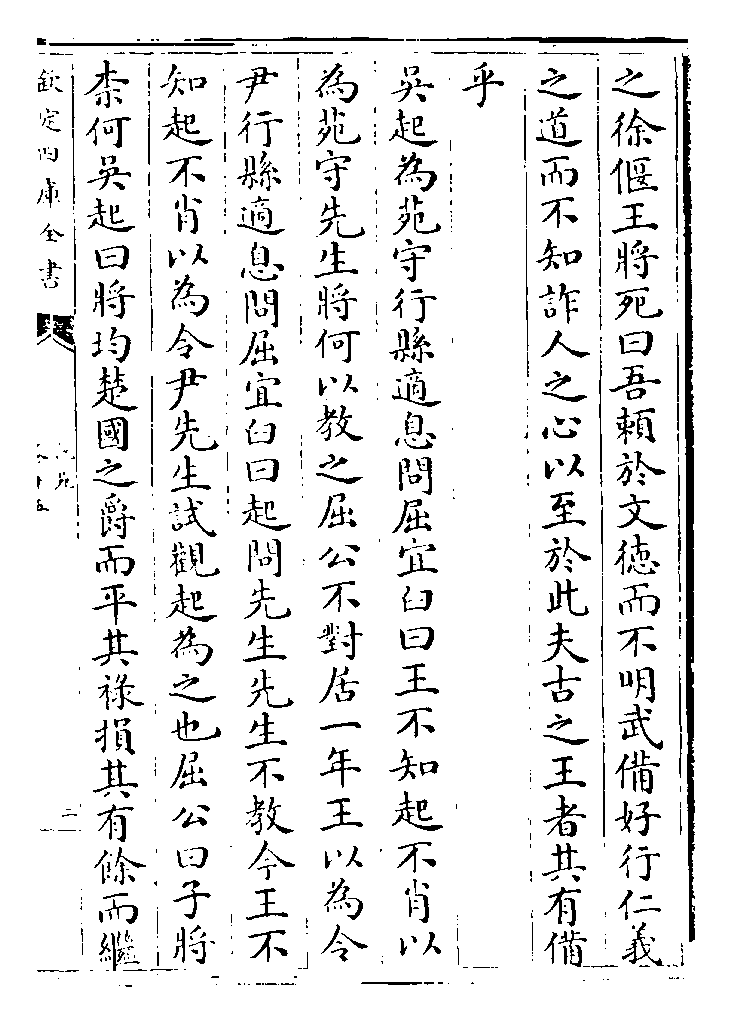 之徐偃王將死曰吾賴於文徳而不明武備好行仁義
之道而不知詐人之心以至於此夫古之王者其有備
乎
吳起為苑守行縣適息問屈宜臼曰王不知起不肖以
為苑守先生將何以教之屈公不對居一年王以為令
尹行縣適息問屈宜臼曰起問先生先生不教今王不
知起不肖以為令尹先生試觀起為之也屈公曰子將
柰何吳起曰將均楚國之爵而平其祿損其有餘而繼
欽定四庫全書